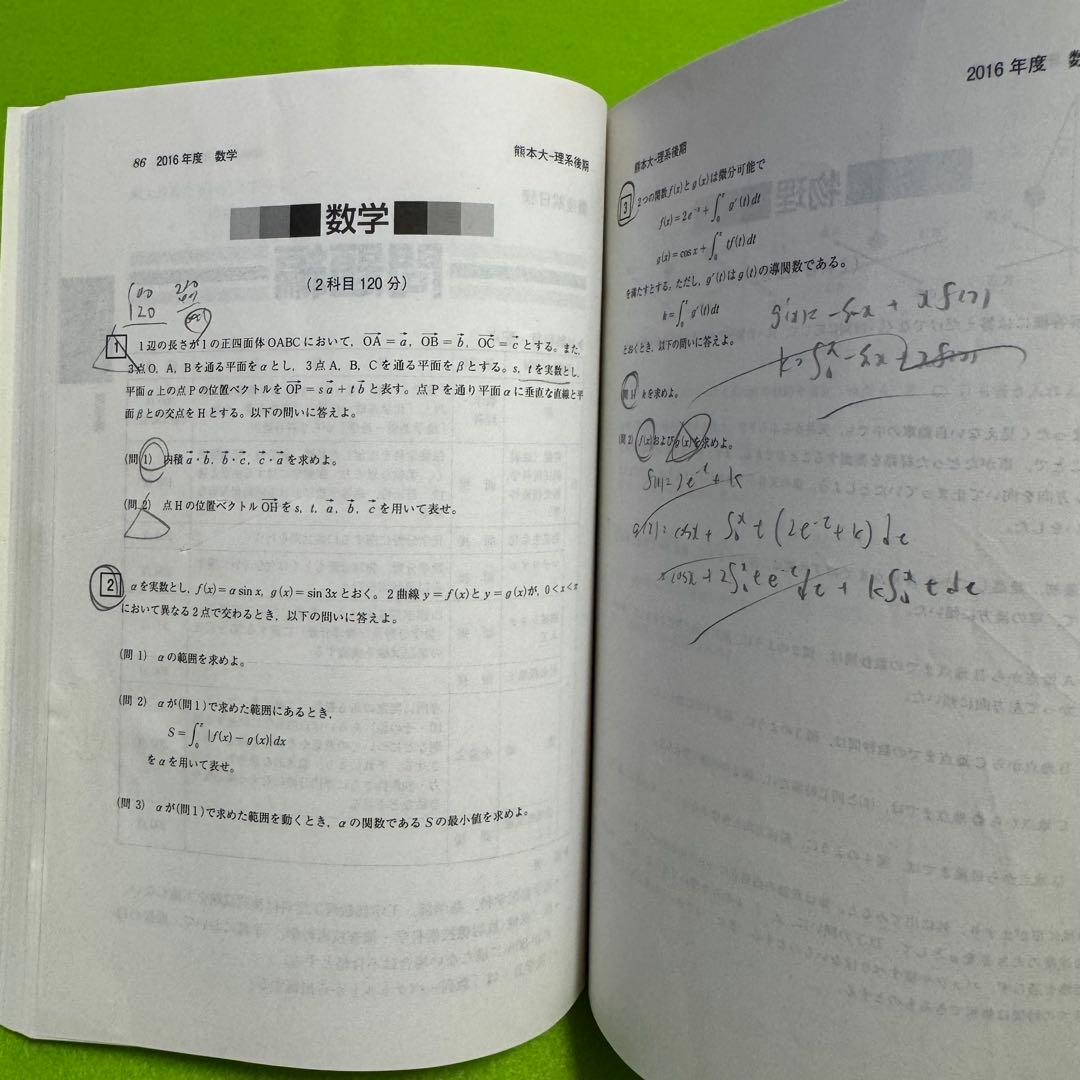 86 2016年度 数学
熊本大-理系後期
数学
(2科目120分)
100
120
1 1辺の長さが1の正四面体OABCにおいて,OA=a, OB=b, OC=cとする。また,
3点O, A, Bを通る平面をαとし,3点A, B, Cを通る平面をβとする。s, tを実数とし,
平面α上の点Pの位置ベクトルをOP=sa+tbと表す。点Pを通り平面αに垂直な直線と平
面βとの交点をHとする。以下の問いに答えよ。
(問1) 内積a・b, b・c, c・aを求めよ。
(問2) 点Hの位置ベクトルOHをs, t, a, b, cを用いて表せ。
2 αを実数とし,f(x)=α sin x, g(x)=sin 3xとおく。2曲線y=f(x)とy=g(x)が,0<x<π
において異なる2点で交わるとき,以下の問いに答えよ。
(問1) αの範囲を求めよ。
(問2) αが(問1)で求めた範囲にあるとき,
S=∫₀^π |f(x)-g(x)|dx
をαを用いて表せ。
(問3) αが(問1)で求めた範囲を動くとき,αの関数であるSの最小値を求めよ。
2016年度 数
熊本大-理系後期
3 2つの関数f(x)とg(x)は微分可能で
f(x)=2e^-x+∫₀^x g'(t)dt
g(x)=cos x+∫₀^x tf(t)dt
を満たすとする。ただし,g'(t)はg(t)の導関数である。
k=∫₀^x g'(t)dt
g'(x)=-sinx + x f(x)
とおくとき,以下の問いに答えよ。
(問1) kを求めよ。
(問2) f(x)およびg(x)を求めよ。
f(x)=2e^-x+k
g(x)=cosx+∫₀^x t(2e^-t+k)dt
cosx+2∫₀^x te^-t dt + k∫₀^x t dt